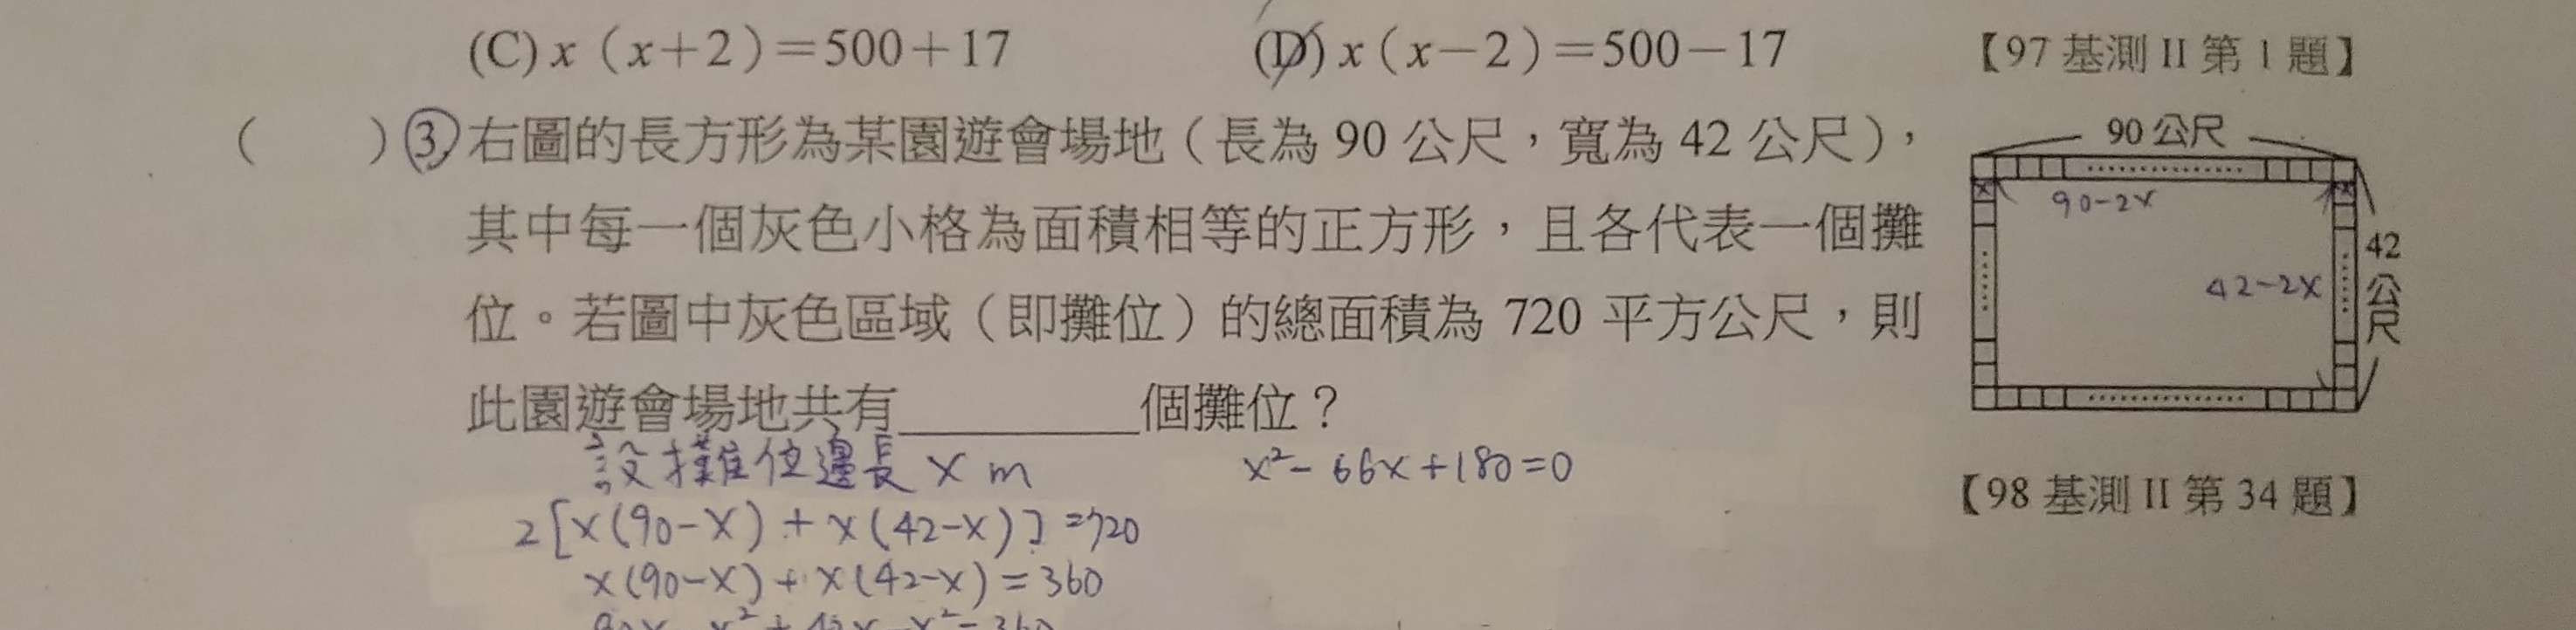 (C) x（x＋2）＝500＋17　(D) x（x－2）＝500－17　【97 基測 II 第 1 題】
（　　）3. 右圖的長方形為某園遊會場地（長為 90 公尺，寬為 42 公尺），
其中每一個灰色小格為面積相等的正方形，且各代表一個攤
位。若圖中灰色區域（即攤位）的總面積為 720 平方公尺，則
此園遊會場地共有________個攤位？
90 公尺
x
x
90-2x
42-2x
42
公
尺
【98 基測 II 第 34 題】
設攤位邊長 x m
x²-66x+180=0
2[x(90-x)+x(42-x)]=720
x(90-x)+x(42-x)=360
90x-x²+42x-x²=360